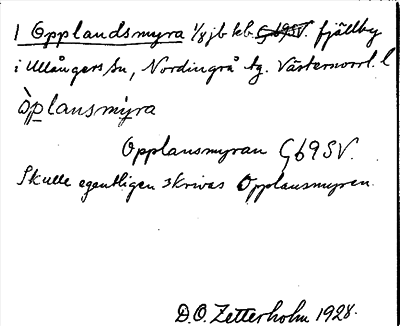 1 Opplandsmyra 1/8 jb kb. G69SV. fjällby
i Ullångers sn, Nordingrå tg. Västernorrl. l
òp̲lansmyra
Opplansmyran G69SV.
Skulle egentligen skrivas Opplansmyren.
D.O. Zetterholm 1928.